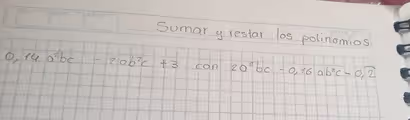 Sumar y restar los polinomios
0,14 a²bc - 2ab²c + 3 con 2a²bc - 0,16 ab²c - 0,2